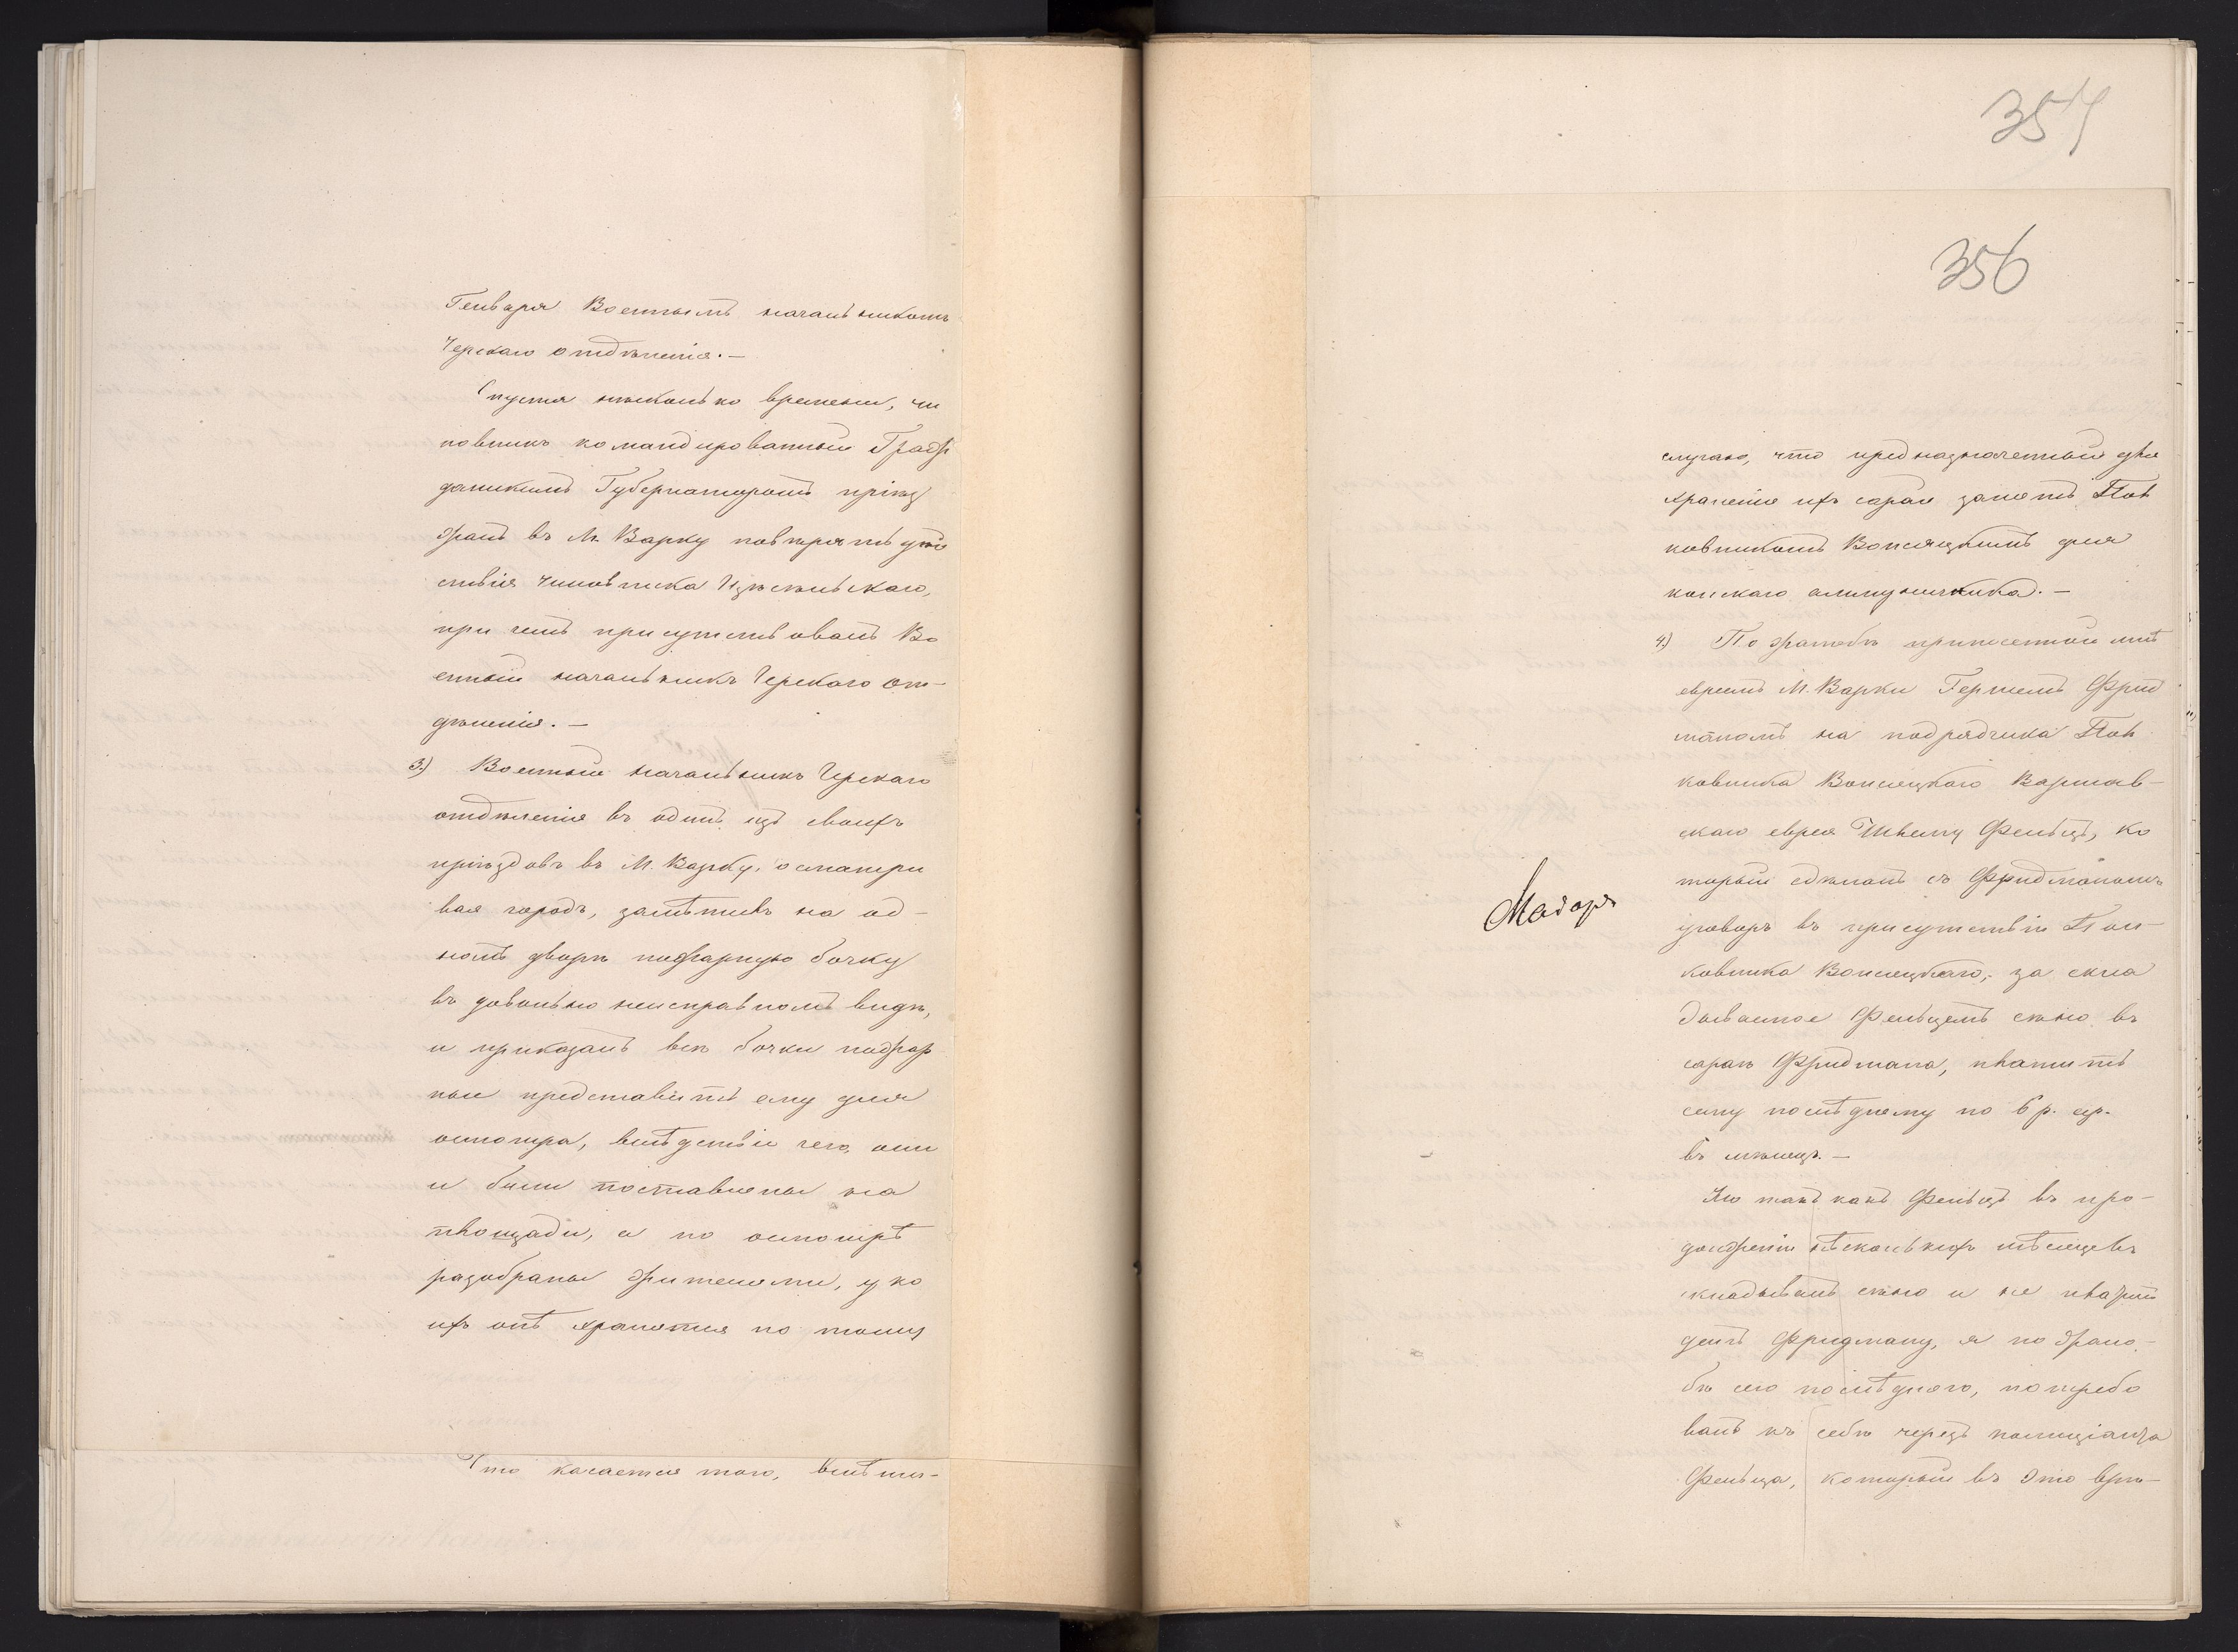 Генваря Военнымъ начальникомъ
Черскаго отдѣленія.—
Спустя нѣсколько времени, чи
новникъ командированный Граж
данскимъ Губернаторомъ пріѣз
жалъ въ М. Варку повѣрять дѣй
ствія чиновника
при чемъ присутствовалъ Во
енный начальникъ Черскаго от-
дѣленія.—
3.) Военный начальникъ Черскаго
отдѣленія въ одинъ изъ своихъ
пріѣздовъ въ М. Варку, осматри
вая городъ, замѣтивъ на од-
номъ дворѣ пожарную бочку
въ довольно неисправномъ видѣ,
и приказалъ всѣ бочки пожар
ныя представить ему для
осмотра, вслѣдствіе чего, они
и были поставлены на
площади, а по осмотрѣ
разобраны жителями, у ко
ихъ онѣ хранятся по тому
Что касается того,
354
356
случаю, что предназначенный для
храненія ихъ сарай занятъ Пол
ковникомъ Вонсяцкимъ для
конскаго
4.) По жалобѣ принесенной мнѣ
евреемъ М. Варки Гершемъ Фрид
маномъ на подрядчика Пол
ковника Вонсяцкаго Варшав-
скаго еврея Фельцъ, ко
торый сдѣлалъ съ Фридманомъ
уговоръ въ присутствіи Пол-
ковника Вонсяцкаго, за скла
дываемое Фельцемъ сѣно въ
сараѣ Фридмана, платить
сему послѣднему по 6 р. сер.
въ мѣсяцъ.—
Но такъ какъ Фельцъ въ про-
долженіи нѣсколькихъ мѣсяцевъ
складывалъ сѣно и не платитъ
денегъ Фридману, я по жало-
бѣ сего послѣдняго, потребо
валъ къ себѣ черезъ полиціанта
Фельца, который въ это врѣ-